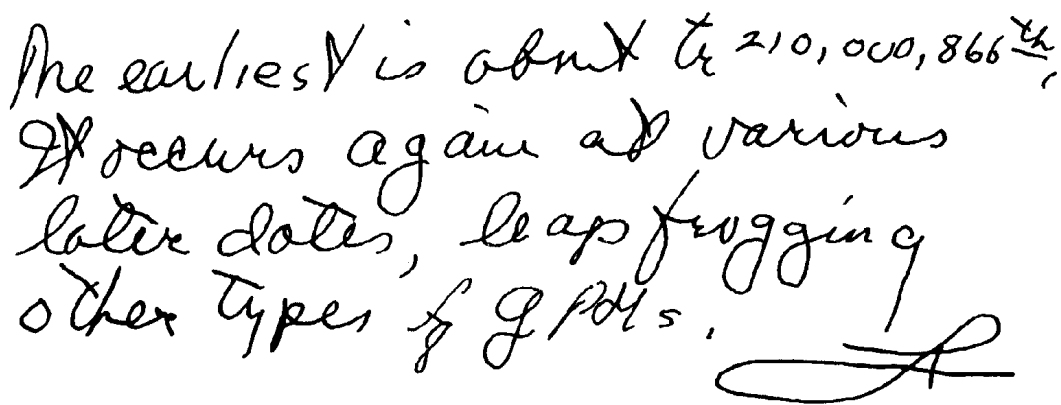 The earliest is about tr 210,000,866th.
It occurs again at various
later dates, leapfrogging
other types of GPMs.